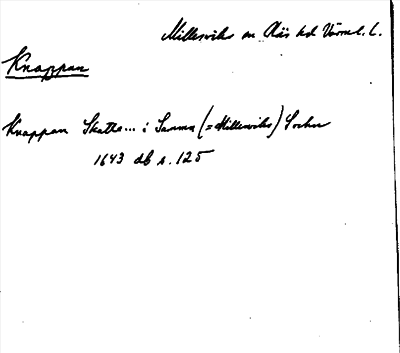 Millesviks sn Näs hd Värml. l.
Knappan
Knappan Skatte... i Samma (=Millesviks) Sochn
1643 db s. 125